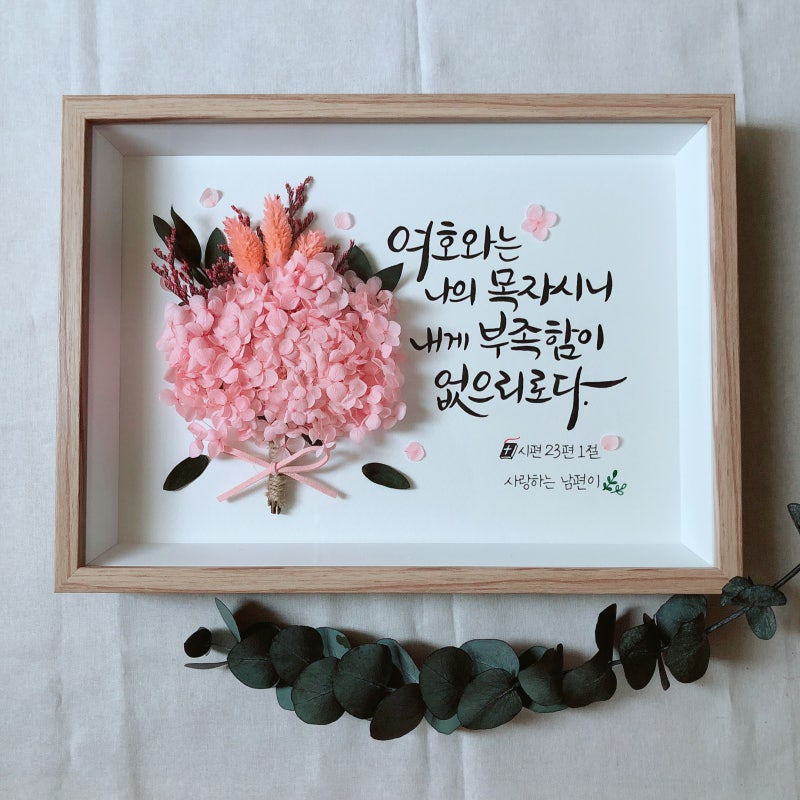 여호와는
나의 목자시니
내게 부족함이
없으리로다.
시편 23편 1절
사랑하는 남편이